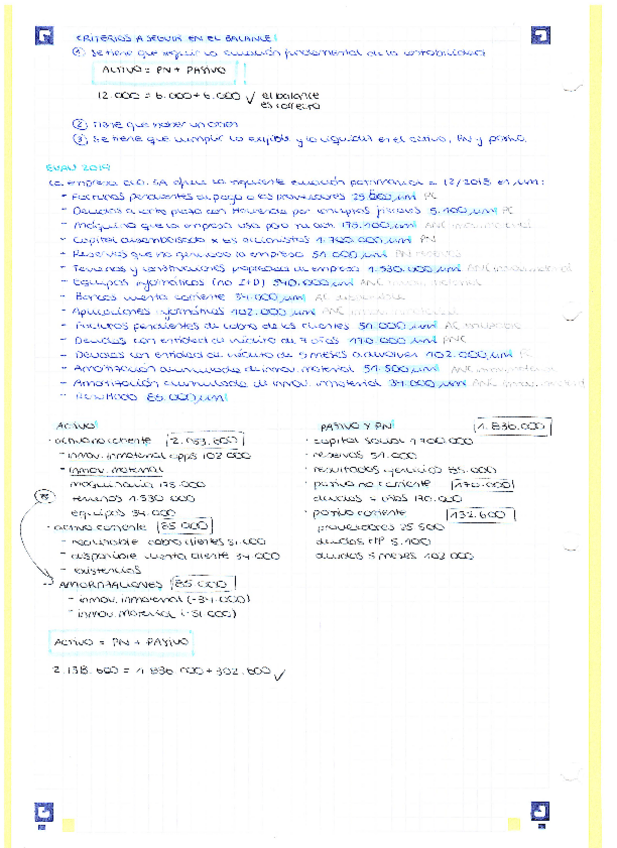 CRITERIOS A SEGUIR EN EL BALANCE:
① Se tiene que seguir la ecuación fundamental de la contabilidad
ACTIVO = PN + PASIVO
12.000 = 6.000 + 6.000 ✓ el balance
es correcto
② Tiene que haber un orden
③ Se tiene que cumplir lo exigible y la liquidez en el activo, PN y pasivo.
EVAU 2019
La empresa S.A. ofrece la siguiente situación patrimonial a 12/2018 en um:
- Facturas pendientes de pago a los proveedores 25.500 um PC
- Deudas a corto plazo con Hacienda por conceptos fiscales 5.100 um PC
- Maquinaria que la empresa usa para su act. 175.100 um ANC
- Capital desembolsado x los accionistas 1.700.000 um PN
- Reservas que ha generado la empresa 51.000 um PN
- Terrenos y construcciones propiedad de empresa 1.530.000 um ANC
- Equipos informáticos (no I+D) 340.000 um ANC
- Bancos cuenta corriente 34.000 um AC disponible
- Aplicaciones informáticas 102.000 um ANC
- Facturas pendientes de cobro de los clientes 51.000 um AC realizable
- Deudas con entidad de crédito de 7 años 170.000 um PNC
- Deudas con entidad de crédito de 5 meses a devolver 102.000 um PC
- Amortización acumulada de inmov. material 51.500 um ANC
- Amortización acumulada de inmov. inmaterial 34.000 um ANC
- Resultado 85.000 um
ACTIVO
· activo no corriente 2.053.600
- inmov. inmaterial apps 102 000
- inmov. material
maquinaria 175.000
terrenos 1.530 000
equipos 34.000
· activo corriente 85 000
- realizable cobro clientes 51.000
- disponible cuenta cliente 34 000
- existencias
AMORTIZACIONES 85 000
- inmov. inmaterial (-34.000)
- inmov. material (-51 000)
PASIVO Y PN 1.836.000
· capital social 1 700.000
· reservas 51.000
· resultados ejercicio 85.000
· pasivo no corriente 170.000
deudas 7 años 170.000
· pasivo corriente 132.600
proveedores 25 500
deudas HP 5.100
deudas 5 meses 102 000
ACTIVO = PN + PASIVO
2.138.600 = 1 836 000 + 302.600 ✓